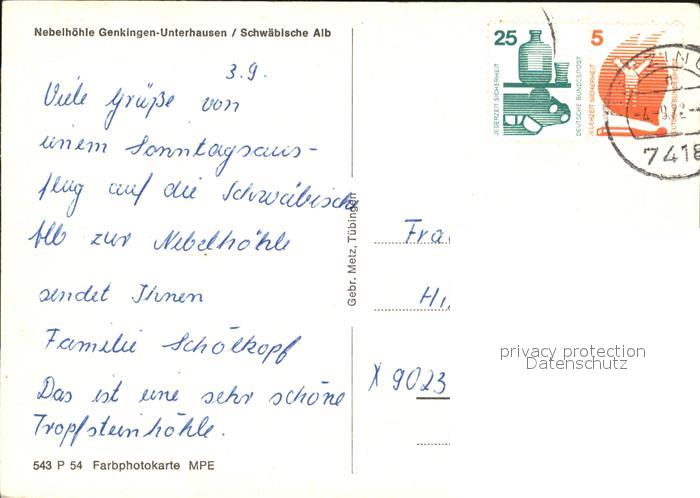 Nebelhöhle Genkingen-Unterhausen / Schwäbische Alb
3.9.
Viele Grüße von
einem Sonntagsaus-
flug auf die Schwäbische
Alb zur Nebelhöhle
sendet Ihnen
Familie Schölkopf
Das ist eine sehr schöne
Tropfsteinhöhle.
543 P 54 Farbphotokarte MPE
Gebr. Metz, Tübingen
25
JEDERZEIT SICHERHEIT
DEUTSCHE BUNDESPOST
5
JEDERZEIT SICHERHEIT
7418
Fra
X 9023
privacy protection
Datenschutz